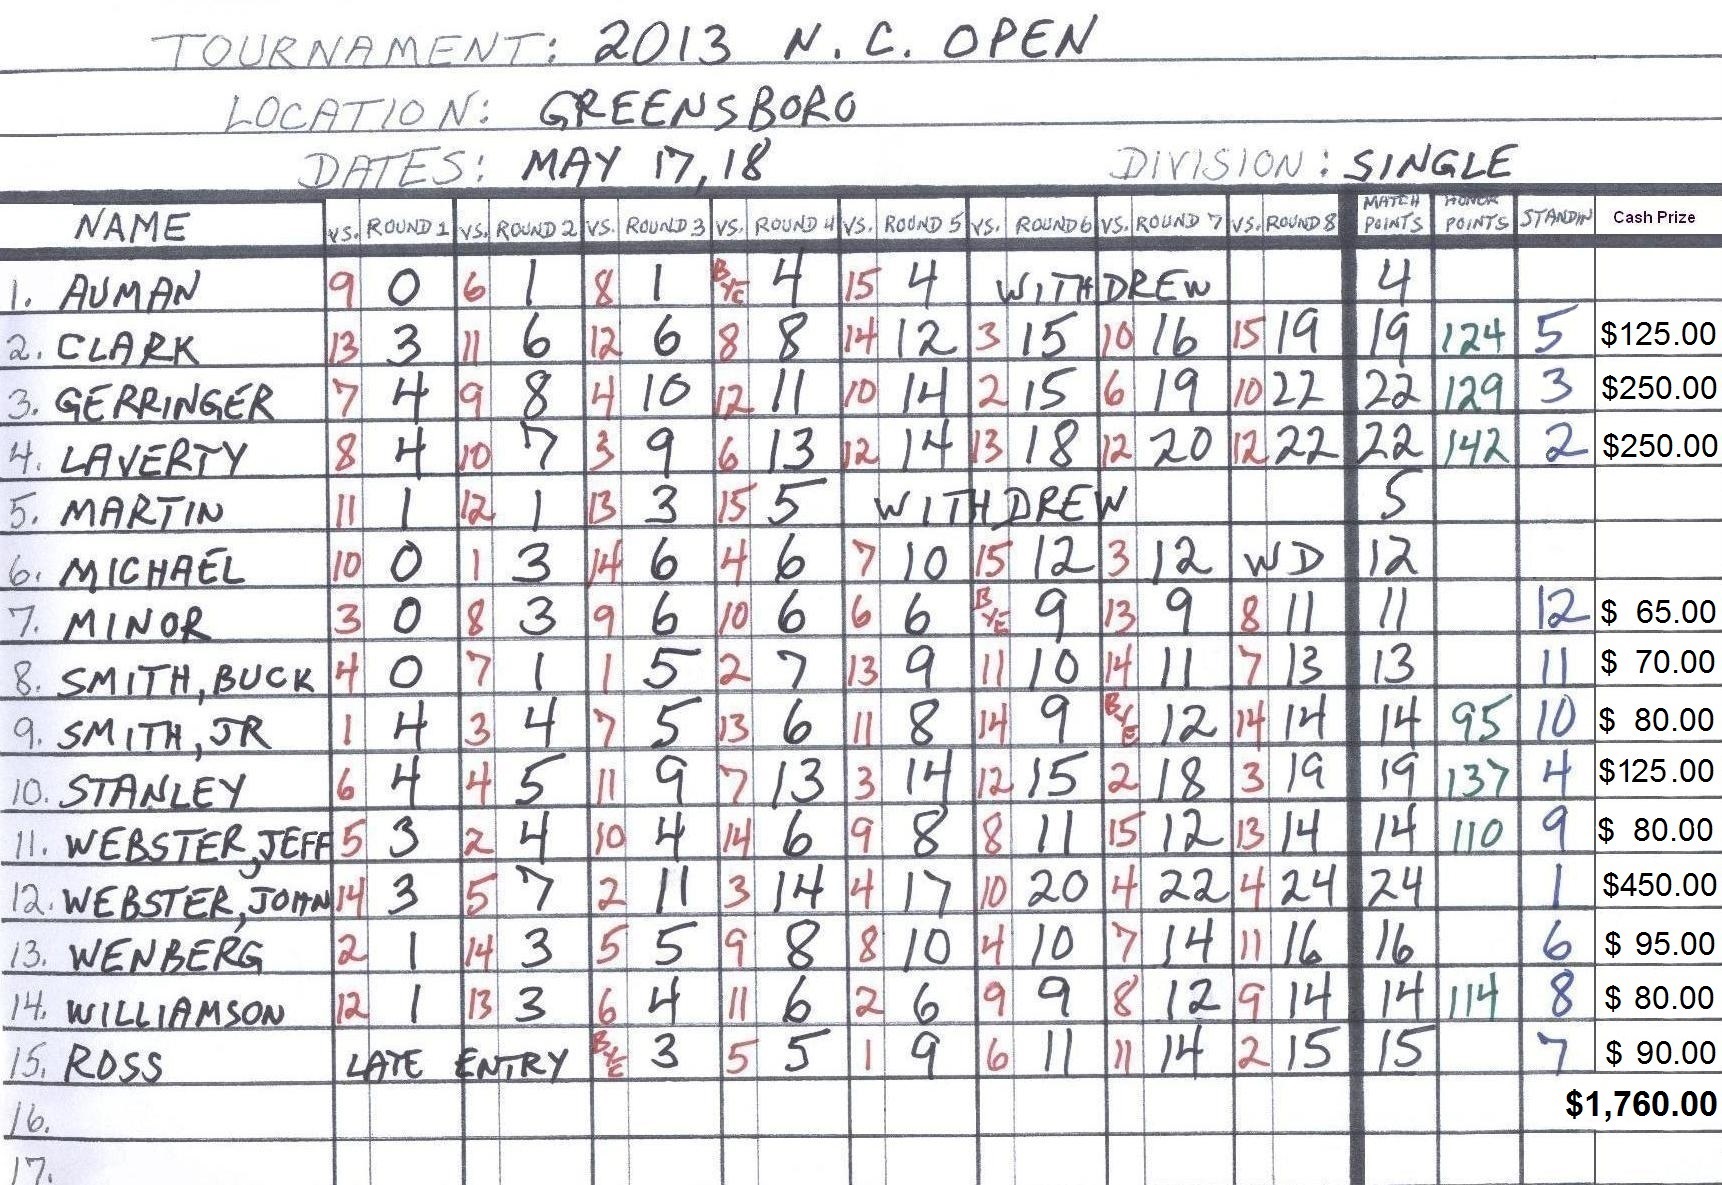 TOURNAMENT: 2013 N.C. OPEN
LOCATION: GREENSBORO
DATES: MAY 17, 18 DIVISION: SINGLE
NAME VS. ROUND 1 VS. ROUND 2 VS. ROUND 3 VS. ROUND 4 VS. ROUND 5 VS. ROUND 6 VS. ROUND 7 VS. ROUND 8 MATCH POINTS HONOR POINTS STANDIN Cash Prize
1. AUMAN 9 0 6 1 8 1 BYE 4 15 4 WITHDREW 4
2. CLARK 13 3 11 6 12 6 8 8 14 12 3 15 10 16 15 19 19 124 5 $125.00
3. GERRINGER 7 4 9 8 4 10 12 11 10 14 2 15 6 19 10 22 22 129 3 $250.00
4. LAVERTY 8 4 10 7 3 9 6 13 12 14 13 18 12 20 12 22 22 142 2 $250.00
5. MARTIN 11 1 12 1 13 3 15 5 WITHDREW 5
6. MICHAEL 10 0 1 3 14 6 4 6 7 10 15 12 3 12 WD 12
7. MINOR 3 0 8 3 9 6 10 6 6 6 BYE 9 13 9 8 11 11 12 $ 65.00
8. SMITH, BUCK 4 0 7 1 1 5 2 7 13 9 11 10 14 11 7 13 13 11 $ 70.00
9. SMITH, JR 1 4 3 4 7 5 13 6 11 8 14 9 BYE 12 14 14 14 95 10 $ 80.00
10. STANLEY 6 4 4 5 11 9 7 13 3 14 12 15 2 18 3 19 19 137 4 $125.00
11. WEBSTER, JEFF 5 3 2 4 10 4 14 6 9 8 8 11 15 12 13 14 14 110 9 $ 80.00
12. WEBSTER, JOHN 14 3 5 7 2 11 3 14 4 17 10 20 4 22 4 24 24 1 $450.00
13. WENBERG 2 1 14 3 5 5 9 8 8 10 4 10 7 14 11 16 16 6 $ 95.00
14. WILLIAMSON 12 1 13 3 6 4 11 6 2 6 9 9 8 12 9 14 14 114 8 $ 80.00
15. ROSS LATE ENTRY BYE 3 5 5 1 9 6 11 11 14 2 15 15 7 $ 90.00
16. $1,760.00
17.